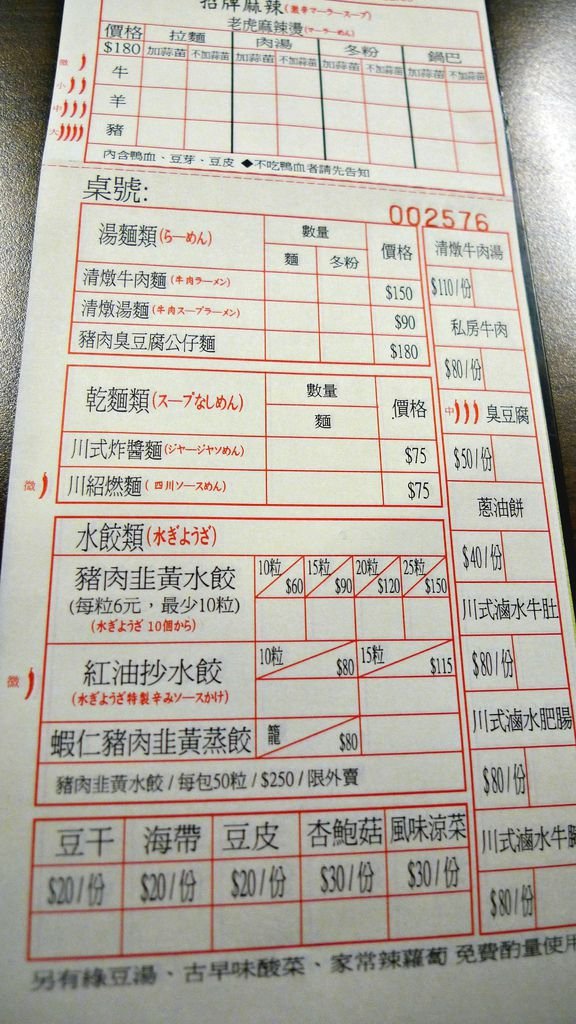 招牌麻辣(激辛マーラースープ)
老虎麻辣燙(マーラーめん)
價格 拉麵 肉湯 冬粉 鍋巴
$180 加蒜苗 不加蒜苗 加蒜苗 不加蒜苗 加蒜苗 不加蒜苗 加蒜苗 不加蒜苗
微 牛
小 羊
中 豬
大
內含鴨血、豆芽、豆皮 ◆不吃鴨血者請先告知
桌號:
002576
湯麵類(らーめん) 數量 價格
麵 冬粉
清燉牛肉麵(牛肉ラーメン) $150
清燉湯麵(牛肉スープラーメン) $90
豬肉臭豆腐公仔麵 $180
乾麵類(スープなしめん) 數量 價格
麵
川式炸醬麵(ジャージャソめん) $75
微 川紹燃麵(四川ソースめん) $75
水餃類(水ぎようざ)
豬肉韭黃水餃 10粒 $60 15粒 $90 20粒 $120 25粒 $150
(每粒6元，最少10粒)
(水ぎようざ 10個から)
微 紅油抄水餃 10粒 $80 15粒 $115
(水ぎようざ特製辛みソースかけ)
蝦仁豬肉韭黃蒸餃 籠 $80
豬肉韭黃水餃/每包50粒/$250/限外賣
清燉牛肉湯
$110/份
私房牛肉
$80/份
中 臭豆腐
$50/份
蔥油餅
$40/份
川式滷水牛肚
$80/份
川式滷水肥腸
$80/份
川式滷水牛
$80/份
豆干 海帶 豆皮 杏鮑菇 風味涼菜
$20/份 $20/份 $20/份 $30/份 $30/份
另有綠豆湯、古早味酸菜、家常辣蘿蔔 免費酌量使用